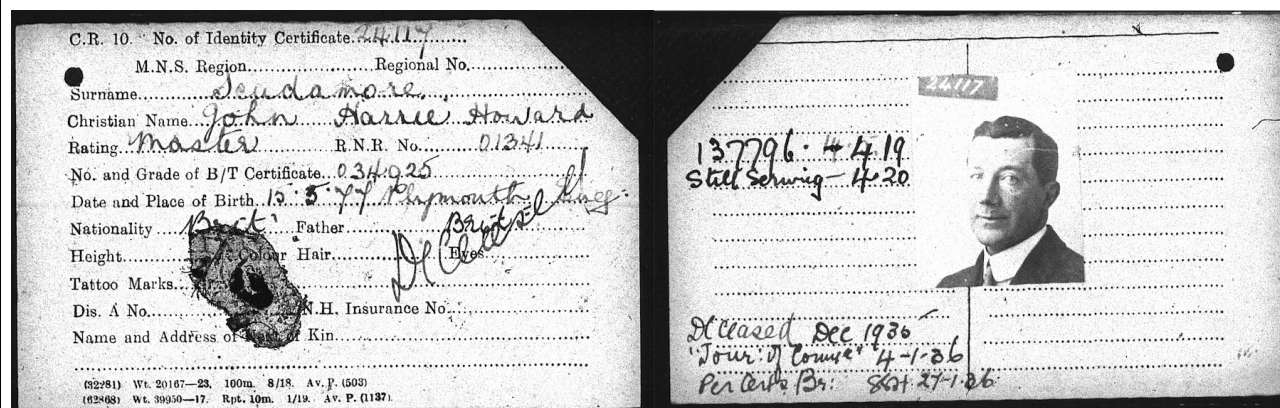 C.R. 10. No. of Identity Certificate. 24117
M.N.S. Region. Regional No.
Surname. Scudamore.
Christian Name. John Harrie Howard
Rating. Master R.N.R. No. 01341
No. and Grade of B/T Certificate. 034925
Date and Place of Birth. 15 5 77 Plymouth
Nationality Brit Father Brit
Height. Colour Hair. Eyes.
Deceased
Tattoo Marks.
Dis. A No. N.H. Insurance No.
Name and Address of Kin
(32281) Wt. 20167—23. 100m. 8/18. Av. P. (503)
(62868) Wt. 39950—17. Rpt. 10m. 1/19. Av. P. (1137).
24117
137796. 4 4 19
Still Serving — 4.20
Deceased Dec 1935
"Jour: of Comme" 4-1-36
Per Certs. Br: 27-1-36